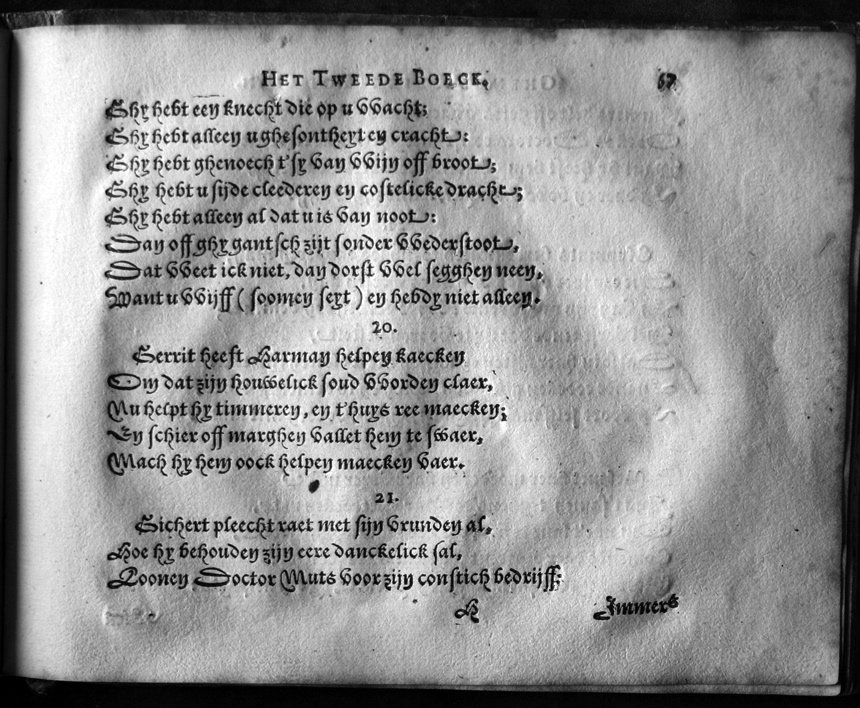 HET TWEEDE BOECK. 67
Ghy hebt een knecht die op u wacht;
Ghy hebt alleen u ghesontheyt en cracht:
Ghy hebt ghenoech t'sy van wijn off broot;
Ghy hebt u sijde cleederen en costelicke dracht;
Ghy hebt alleen al dat u is van noot:
Dan off ghy gantsch zijt sonder wederstoot,
Dat weet ick niet, dan dorst wel segghen neen,
Want u wijff (soomen seyt) en hebdy niet alleen.
20.
Gerrit heeft Harman helpen kaecken
Om dat zijn houwelick soud worden claer,
Nu helpt hy timmeren, en t'huys ree maecken;
En schier off marghen vallet hem te swaer,
Mach hy hem oock helpen maecken vaer.
21.
Sichert pleecht raet met sijn vrunden al,
Hoe hy behouden zijn eere danckelick sal,
Loonen Doctor Muts voor zijn constich bedrijff:
Immers